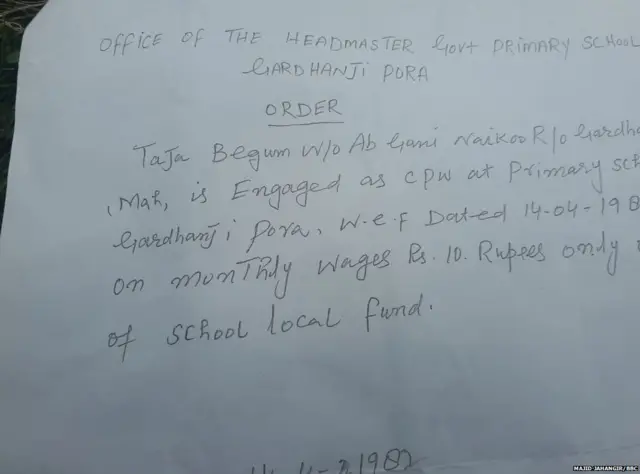 OFFICE OF THE HEADMASTER Govt PRIMARY SCHOOL
GARDHANJI PORA
ORDER
Taja Begum W/o Ab Gani Naikoo R/o Gardha
Mah, is Engaged as CPW at Primary Sch
Gardhanji Pora, W.e.f Dated 14-04-198
on monthly wages Rs. 10. Rupees only
of School local fund.
1982
MAJID JAHANGIR/BBC